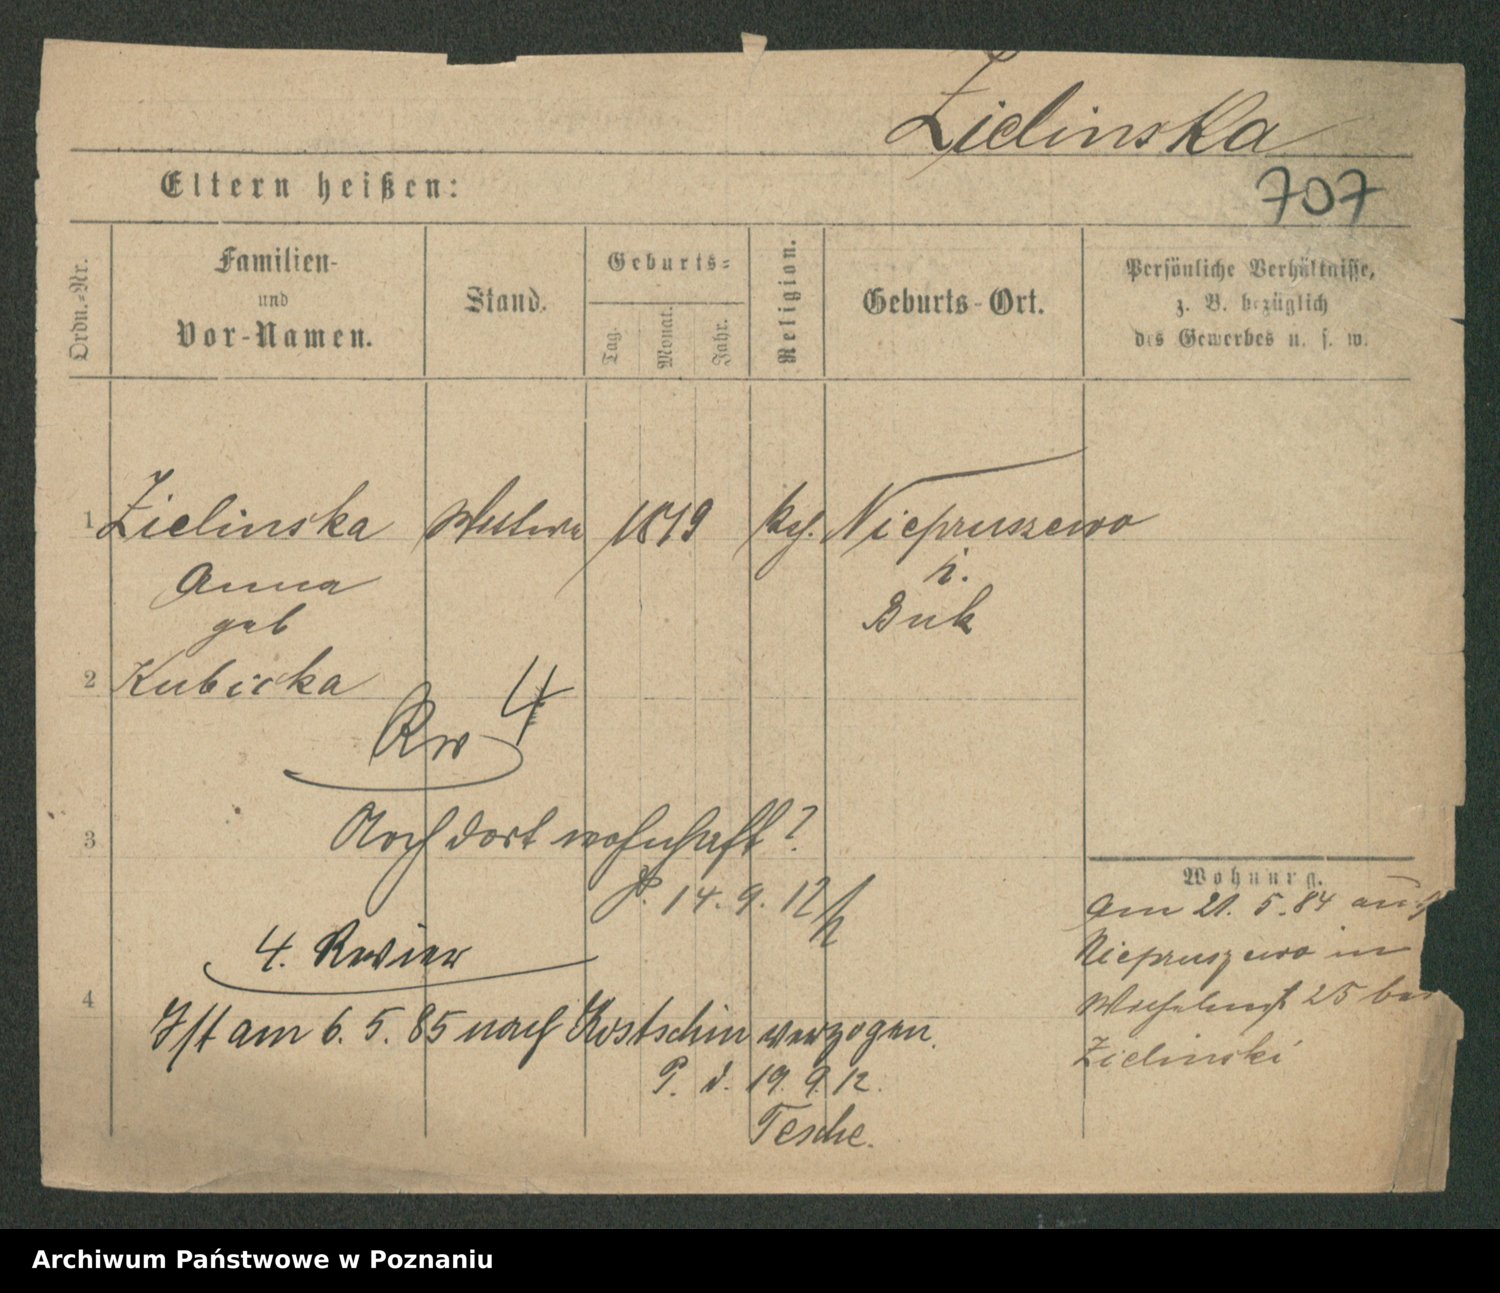 Zielinska
707
Eltern heißen:
Ordn.-Nr.
Familien-
und
Vor-Namen.
Stand.
Geburts-
Tag.
Monat.
Jahr.
Religion.
Geburts-Ort.
Persönliche Verhältnisse,
z. B. bezüglich
des Gewerbes u. s. w.
1 Zielinska 1819 Niepruszewo
Anna p.
geb Buk
2 Kubicka
Rw 4
3 Noch dort wohnhaft?
P. 14. 9. 12
4. Revier
4 Ist am 6. 5. 85 nach Kostschin verzogen.
P. d. 19. 9. 12.
Tesche.
Wohnung.
Am 21. 5. 84 aus
Niepruszewo in
25 bei
Zielinski
Archiwum Państwowe w Poznaniu